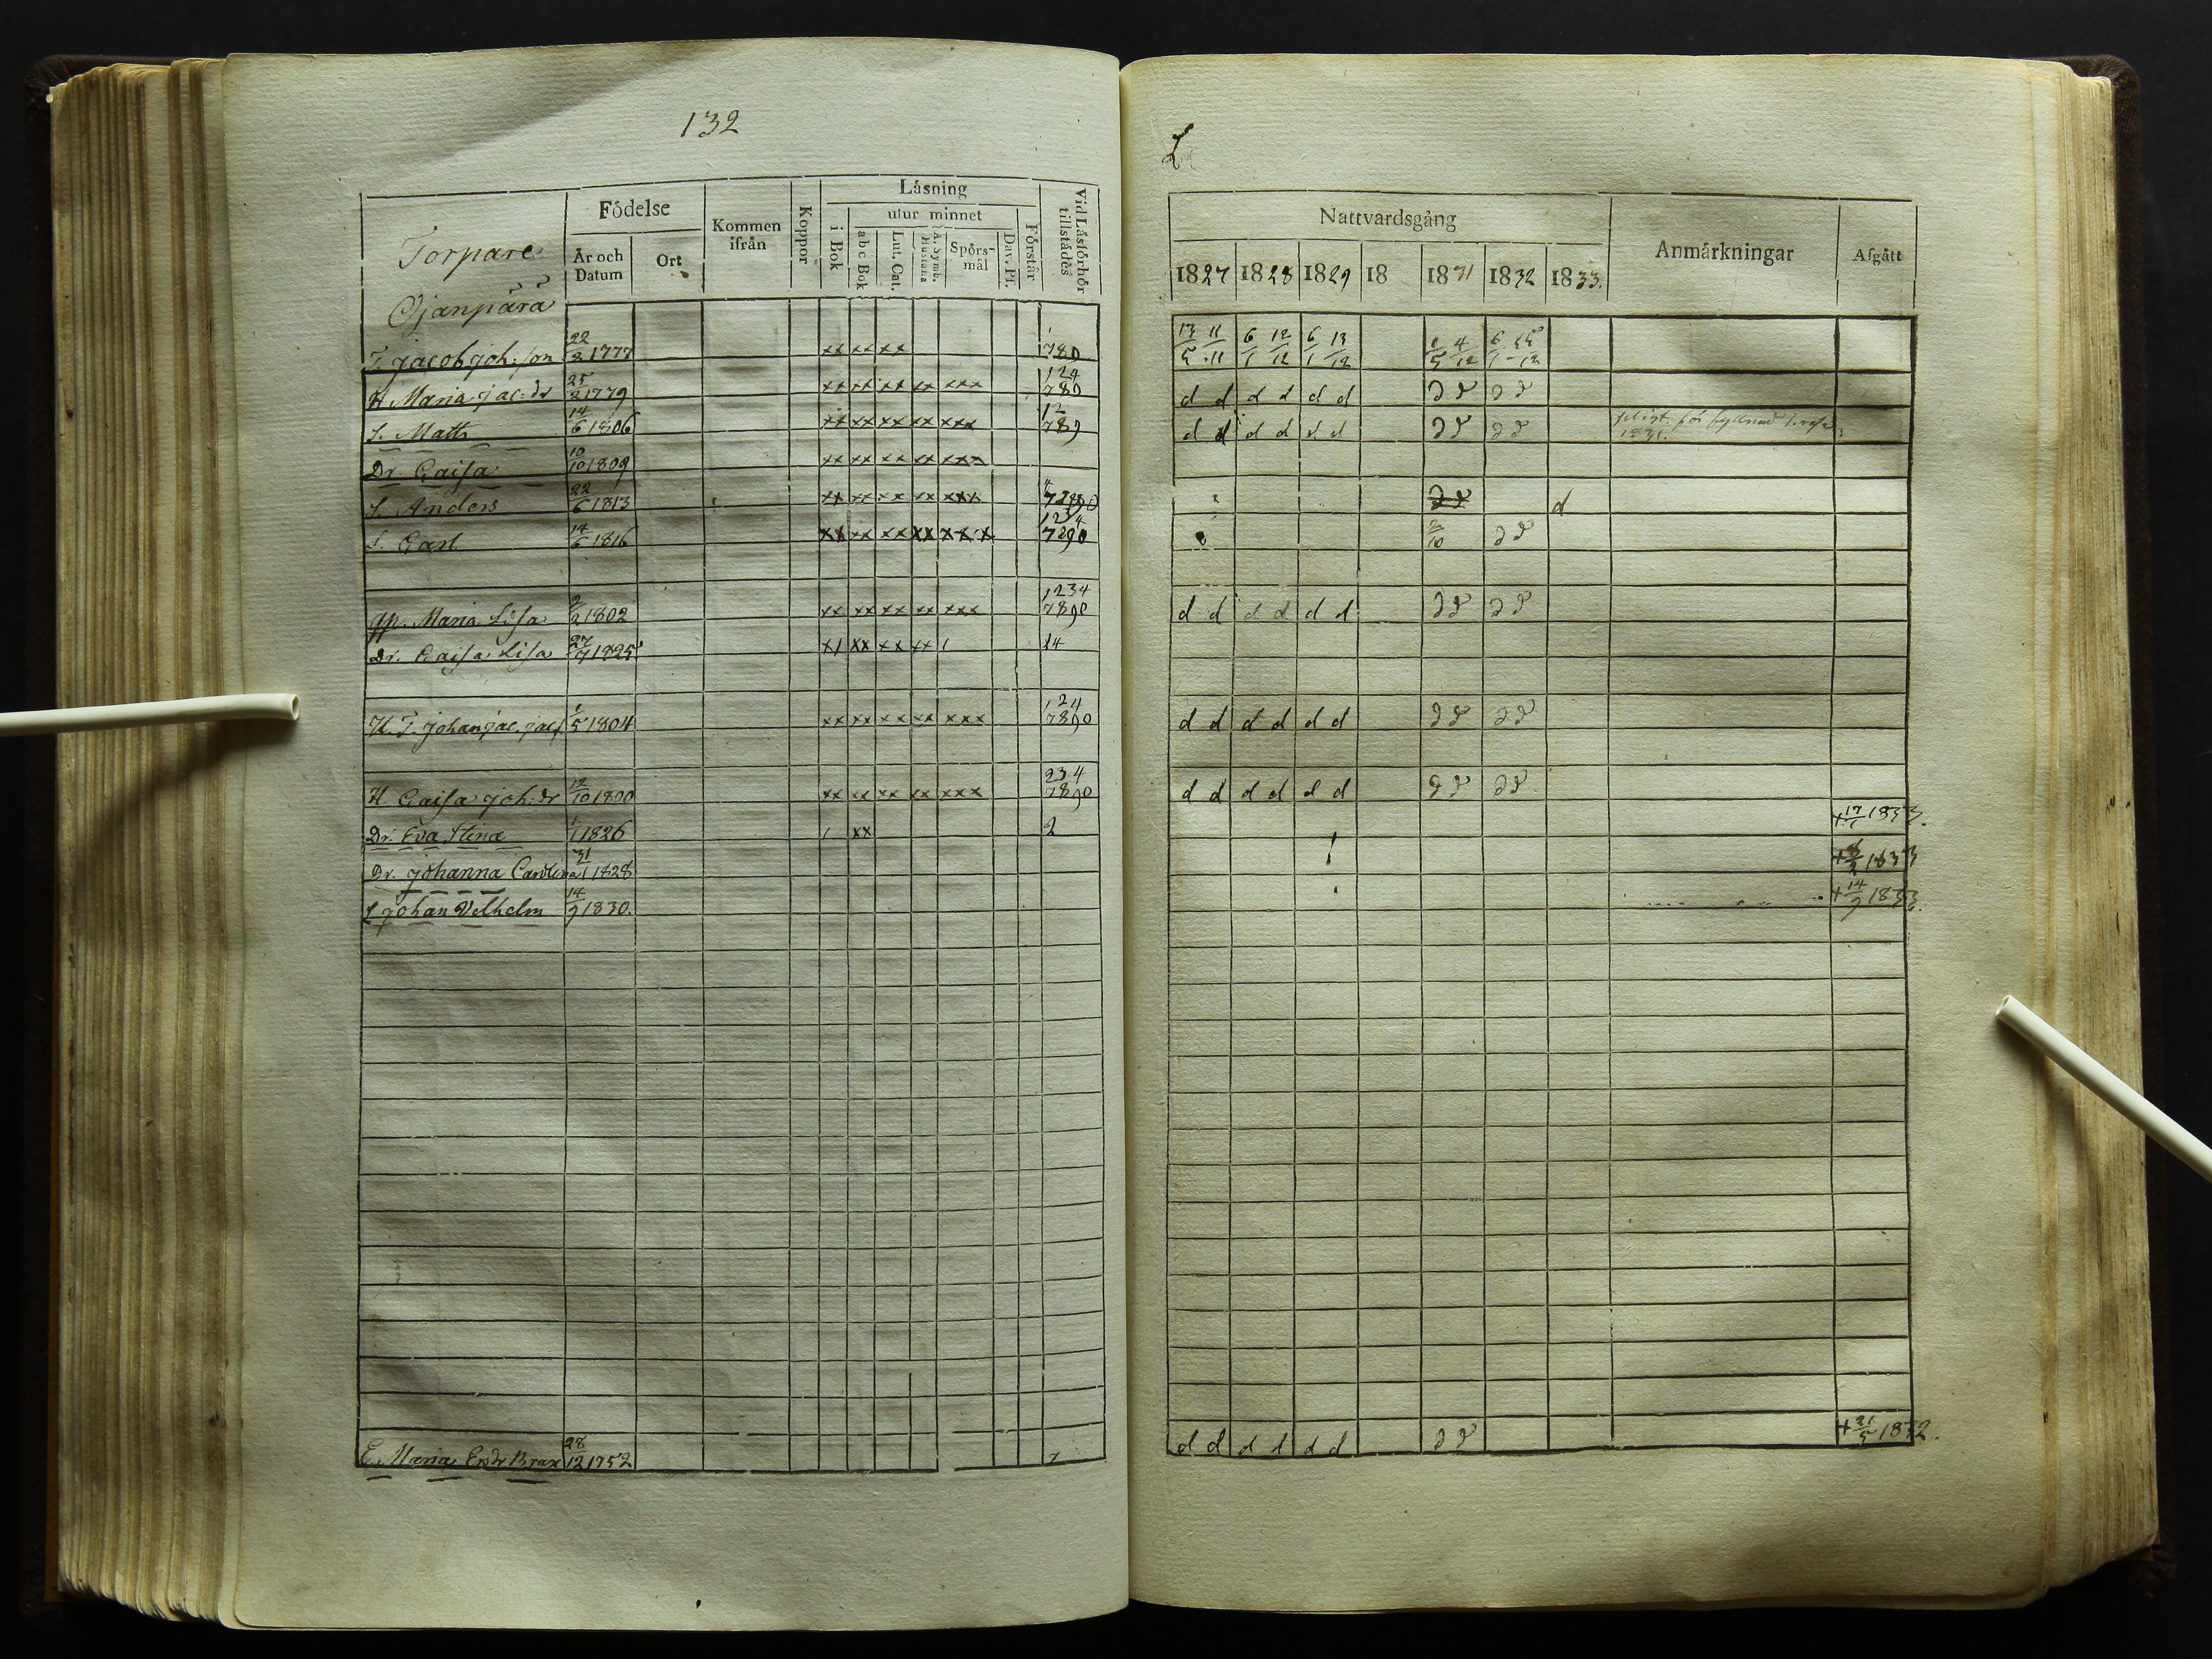 132
Torpare
Ojanpärä
Födelse
År och Datum
Ort
Kommen ifrån
Koppor
Läsning
utur minnet
i Bok
abc Bok
Lut. Cat.
A. Symb.
Hustafla
Spörsmål
Dav. Ps.
Förstår
Vid Läsförhör tillstädes
T. Jacob Joh:son 22/8 1777 xx xx xx 1 789
H. Maria Jac:dr 25/2 1779 xx xx xx xx xxx 124 789
S. Matts 14/6 1806 xx xx xx xx xxx 12 789
Dr. Caisa 10/10 1809 xx xx xx xx xxx
S. Anders 22/6 1813 xx xx xx xx xxx
S. Carl 14/6 1816 xx xx xx xx xxx 1234 7890
Maria Lisa 2/2 1802 xx xx xx xx xxx 1234 7890
Dr. Caisa Lisa 27/7 1825 xx xx xx 14
Johan Jac. 1/5 1804 xx xx xx xx xxx 124 7890
H. Caisa Joh:dr 12/10 1800 xx xx xx xx xxx 234 7890
Dr. Eva Stina 1/1 1826 / xx 2
Dr. Johanna Carolina 31/1 1828
S. Johan Vilhelm 14/9 1830.
E. Maria Brax 28/12 1752 7
L
Nattvardsgång
Anmärkningar
Afgått
1827 1828 1829 18 1831 1832 1833.
6/1 12/12 6/1 13/12 4/12
d d d d d d d d d d
d d d d d d d d d d
1831.
d
2/10 d d
d d d d d d d d d d
d d d d d d d d d d
d d d d d d d d d d
+ 17/1 1833.
1833
+ 14/9 1833.
d d d d d d d d + 21/5 1832.